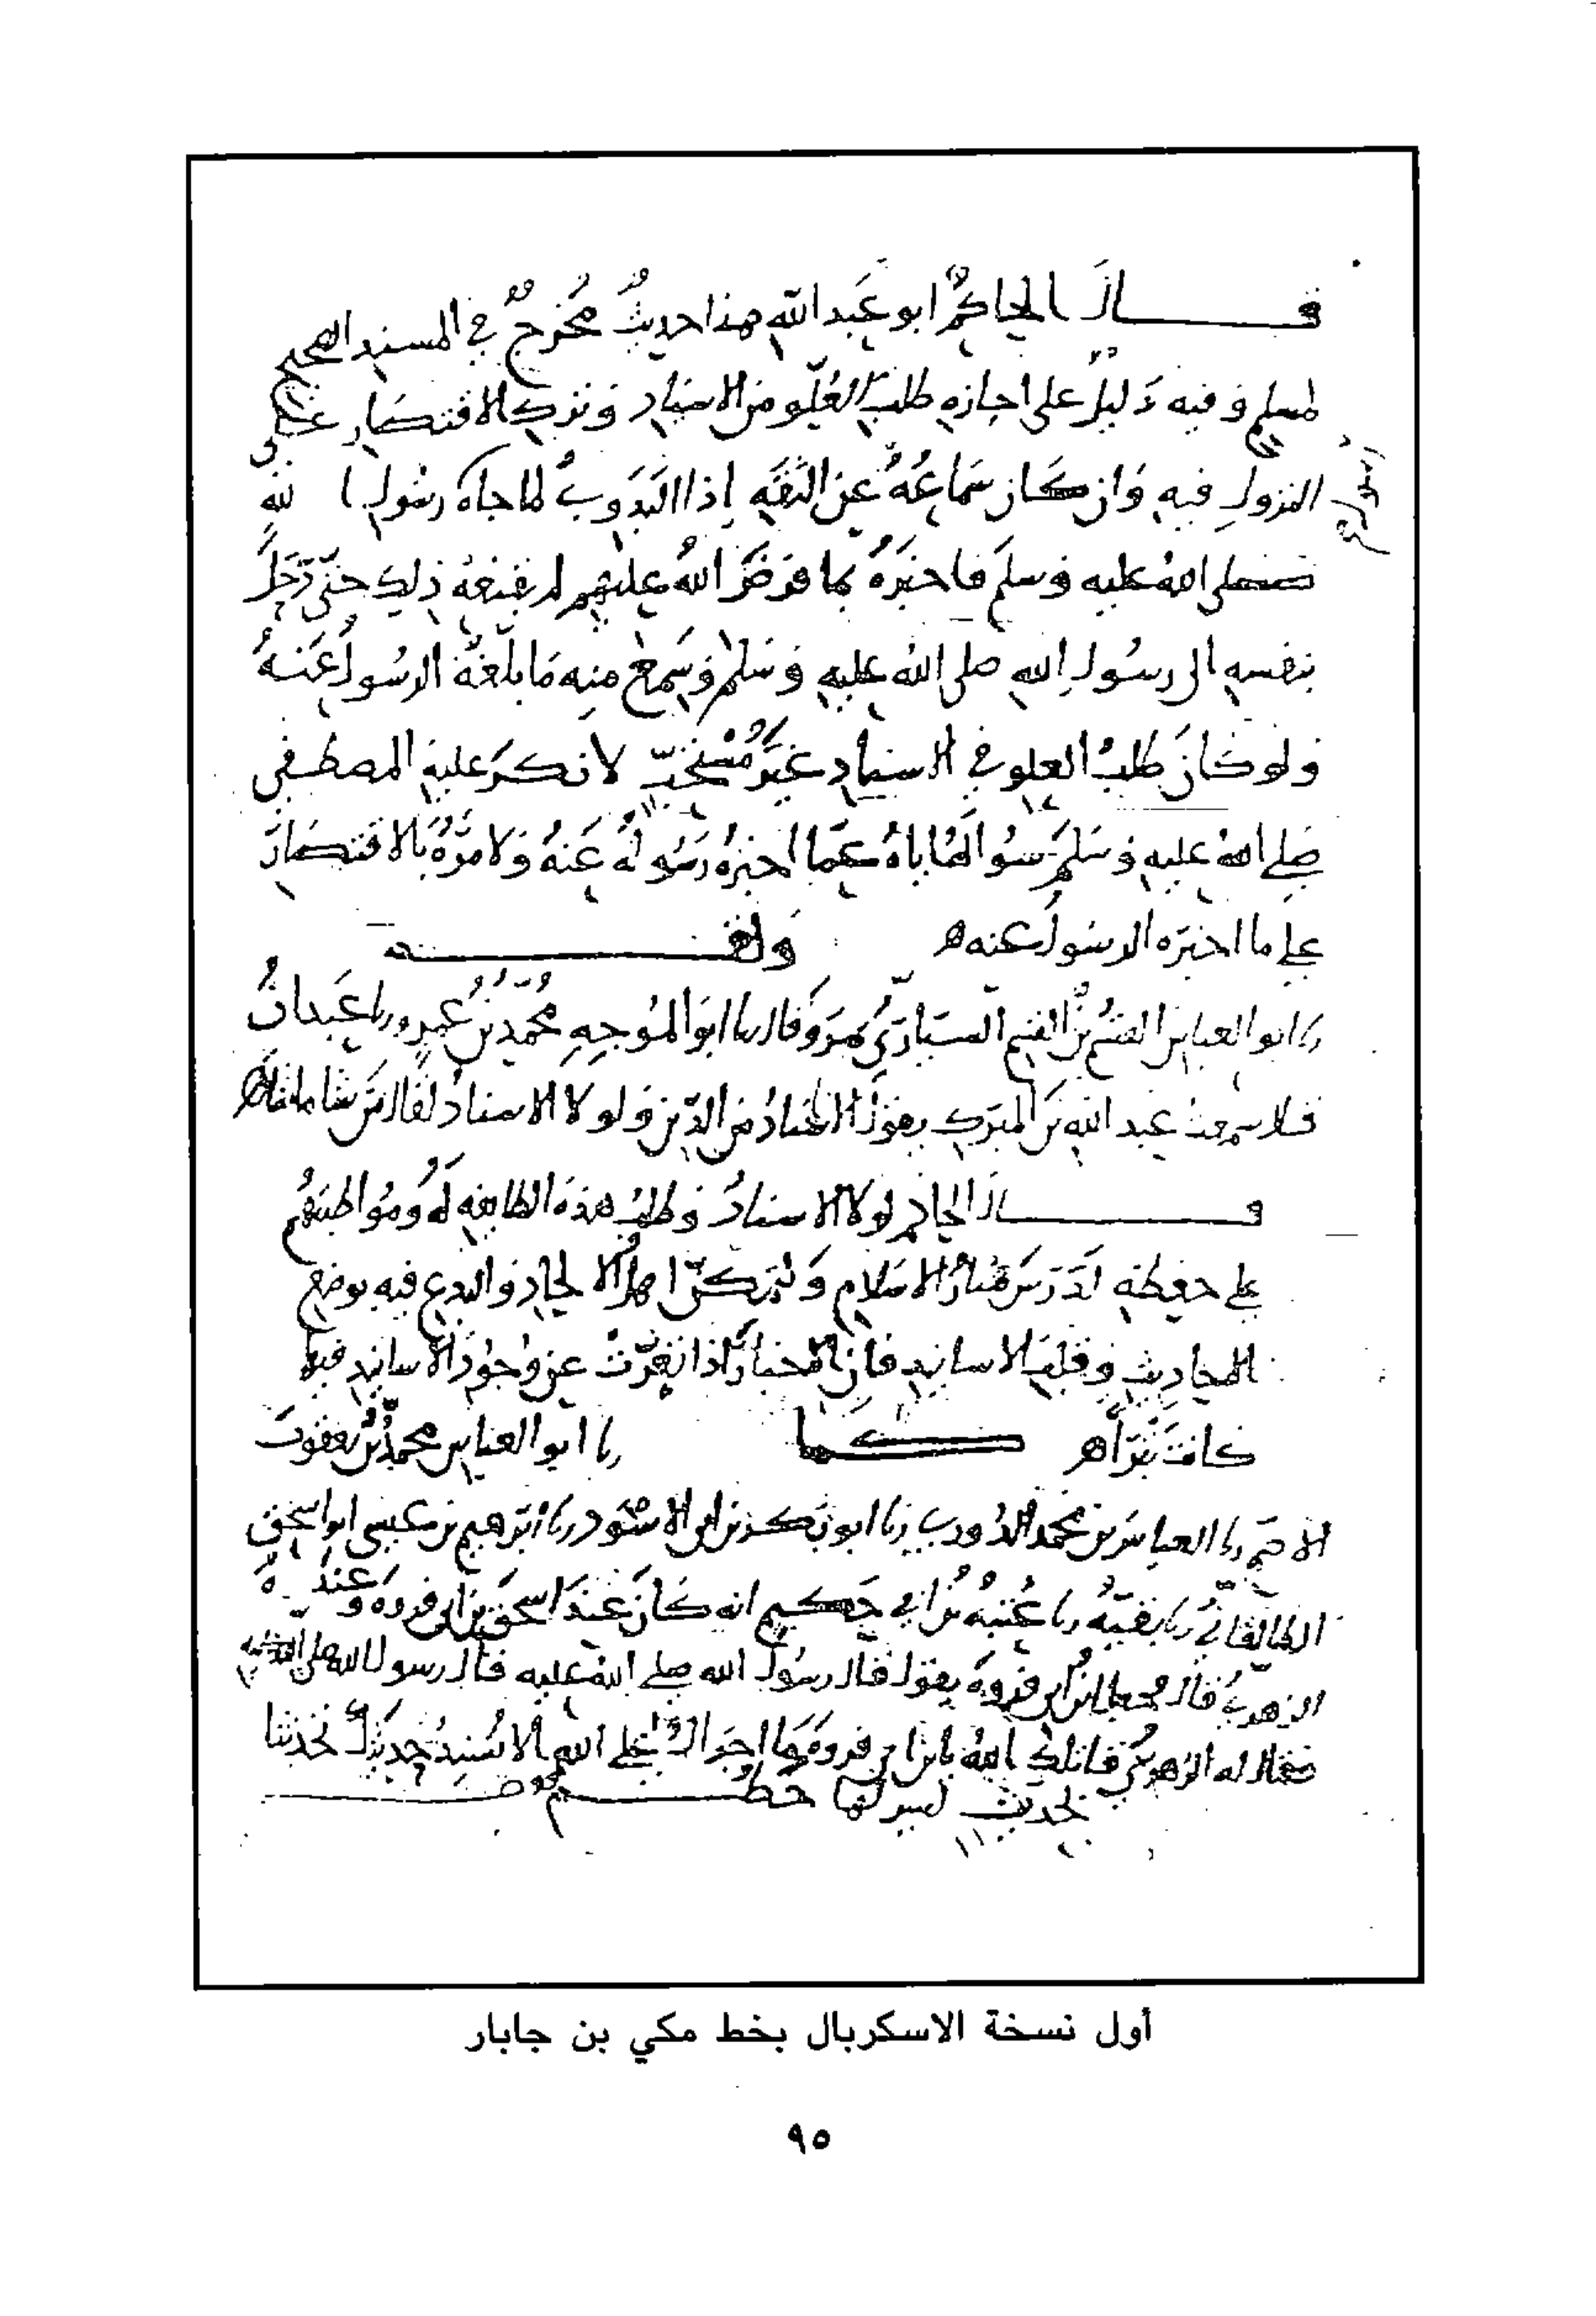 قـــال الحاكم ابو عبد الله هذا حديث مخرج في المسند الصحيح
لمسلم وفيه دليل على اجازه طلب العلو من الاسناد وترك الاقتصار على
النزول فيه وان كان سماعه عن الثقه اذا البدوي لما جاه رسول الله
صلى الله عليه وسلم فاخبره بما فرض الله عليهم لم يقنعه ذلك حتى رحل
بنفسه الى رسول الله صلى الله عليه وسلم وسمع منه ما بلغه الرسول عنه
ولو كان طلب العلو في الاسناد غير مستحب لانكر عليه المصطفى
صلى الله عليه وسلم سواله اياه عما اخبره رسوله عنه ولامره بالاقتصار
على ما اخبره الرسول عنه ه
ابو العباس القسم بن القسم السياري بمرو قال ابو الموجه محمد بن عمرو عبدان
قال سمعت عبد الله بن المبرك يقول الاسناد من الدين ولولا الاسناد لقال من شا ما شا ه
قـــال الحاكم لولا الاسناد وطلب هذه الطايفه له ومواظبتهم
على حفظه لدرس منار الاسلام ولتمكن اهل الالحاد والبدع فيه بوضع
الاحاديث وقلب الاسانيد فان الاخبار اذا تعرت عن وجود الاسانيد فيها
كانت بترا ه كـــما ابو العباس محمد بن يعقوب
الاصم العباس بن محمد الدوري ابو بكر بن ابي الاسود ابرهيم بن عيسى ابو اسحق
الطالقاني بقيه عتبه بن ابي حكيم انه كان عند اسحق بن ابي فروه وعنده
الزهري قال فجعل ابن ابي فروه يقول قال رسول الله صلى الله عليه قال رسول الله صلى الله عليه
فقال له الزهري قاتلك الله يابن ابي فروه ما اجراك على الله الا تسند حديثك تحدثنا
بحديث ليس لها خطـــم
أول نسخة الاسكربال بخط مكي بن جابار
٩٥